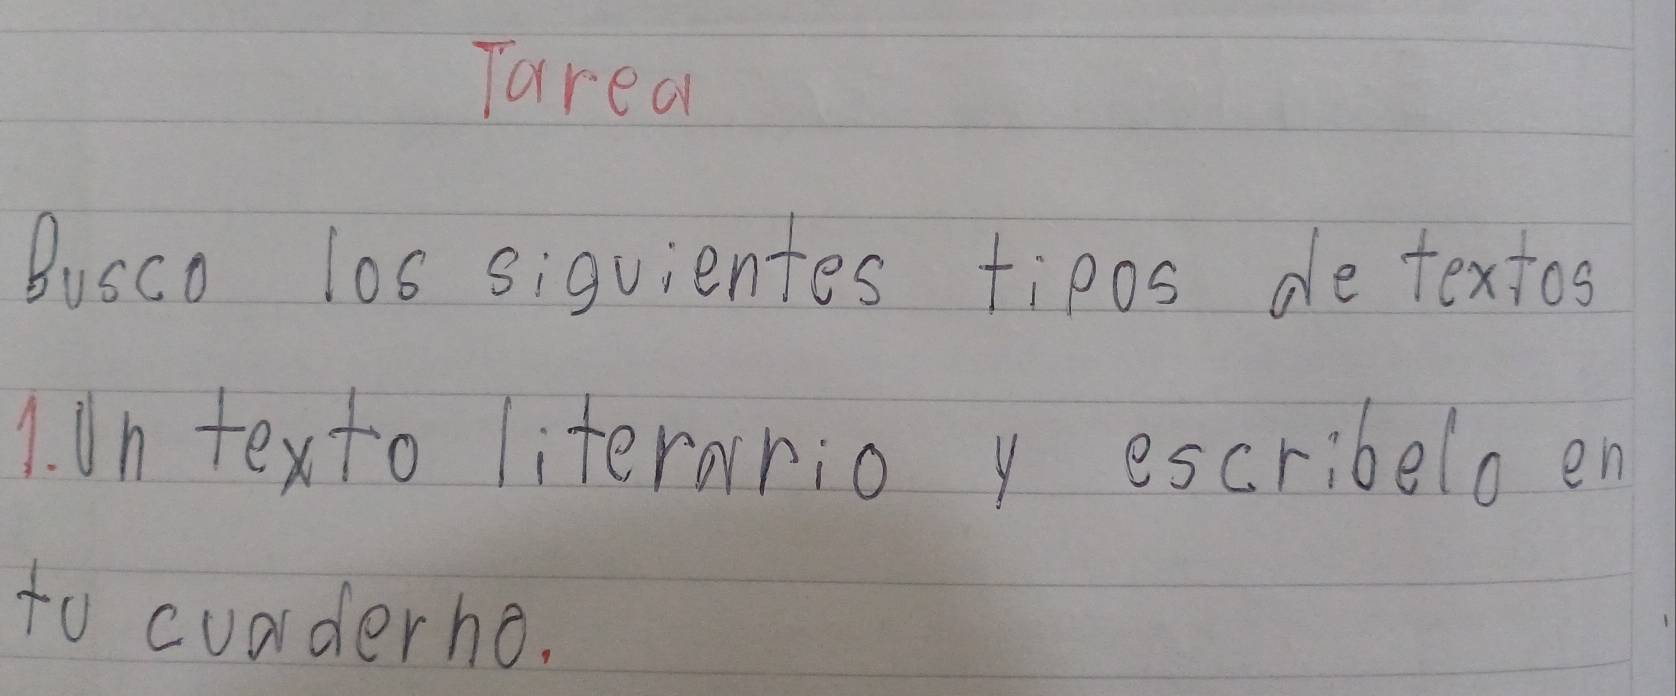 Tarea
Busco los siguientes tipos de textos
1. Un texto literario y escribelo en
tu cuaderno.